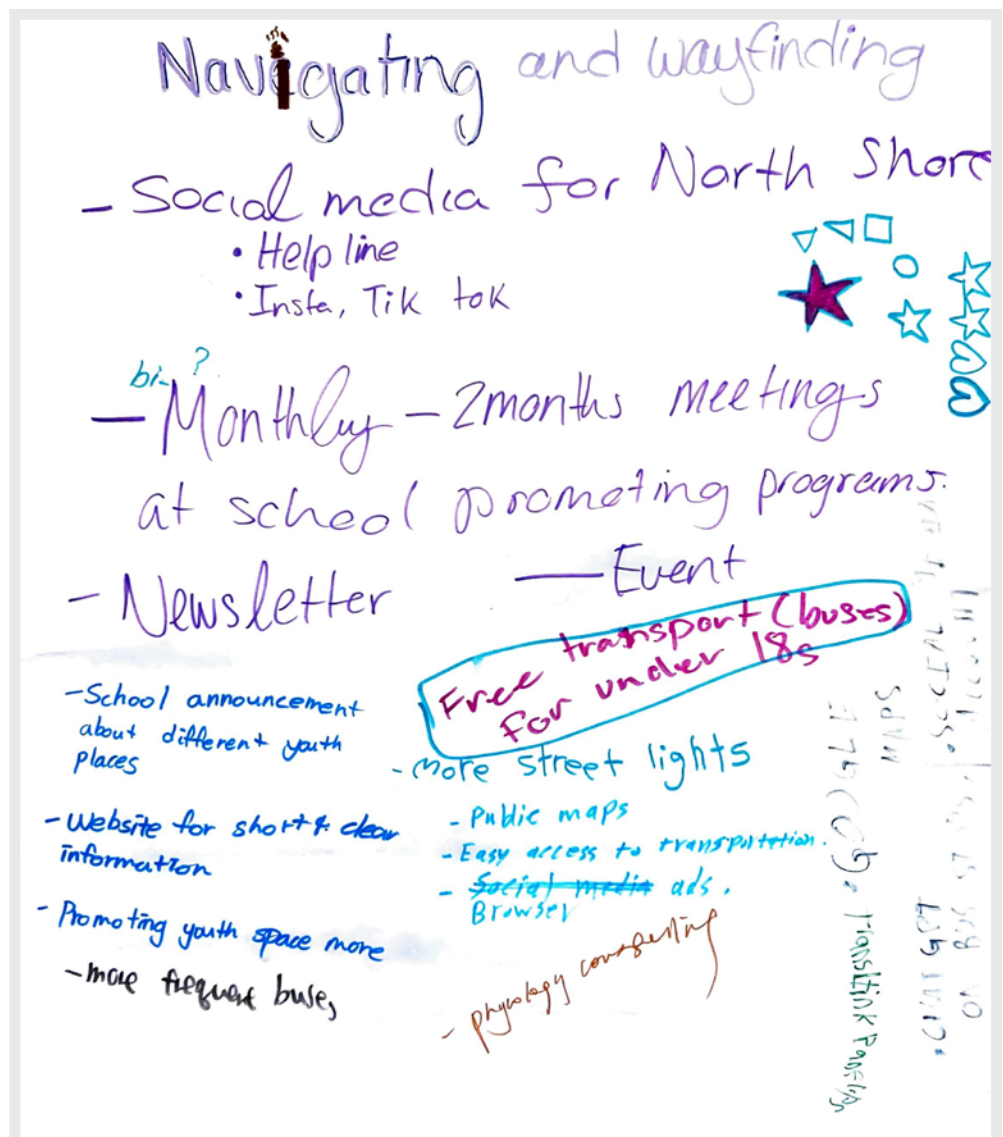 Navigating and wayfinding
- Social media for North Shore
• Help line
• Insta, Tik tok
bi- ?
- Monthly - 2months meetings
at school promoting programs.
- Newsletter
- Event
Free transport (buses)
for under 18s
- School announcement
about different youth
places
- Website for short & clear
information
- Promoting youth space more
- more frequent buses
- More street lights
- Public maps
- Easy access to transportation.
- Social media ads.
Browser
- phycology counselling
Maps
Translink